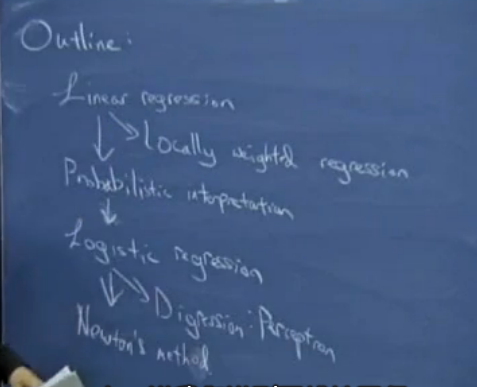 Outline:
Linear regression
Locally weighted regression
Probabilistic interpretation
Logistic regression
Digression: Perceptron
Newton's method